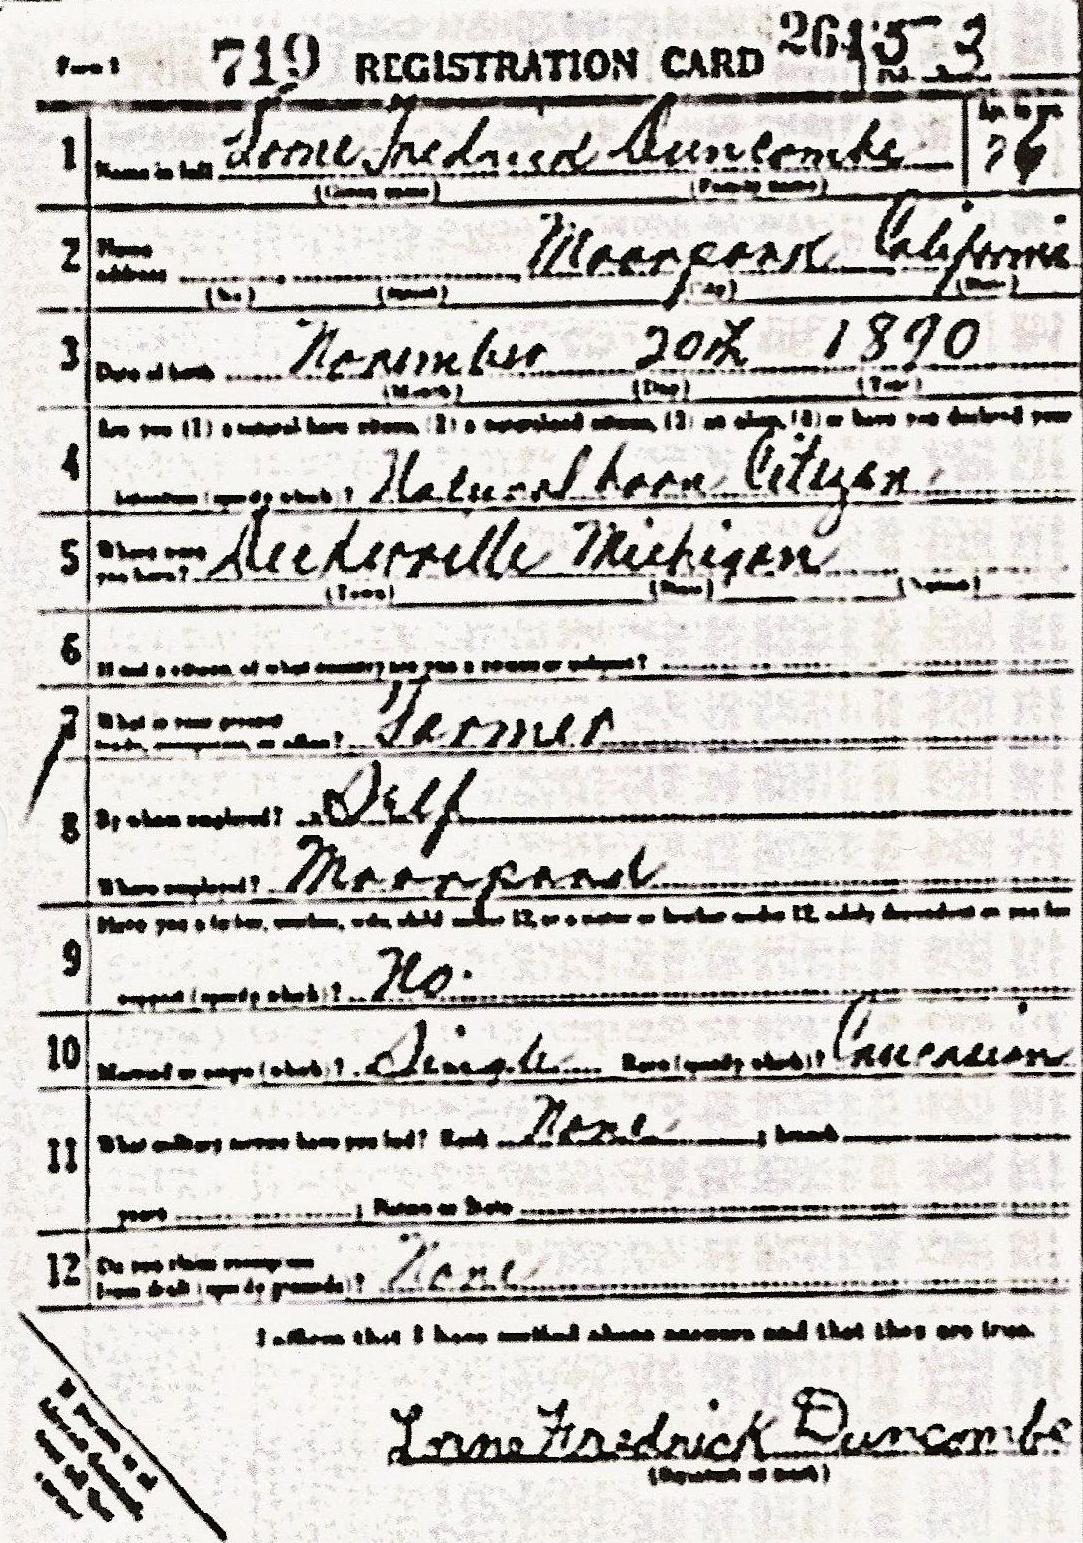 Form 1 719 REGISTRATION CARD 2615 3 No.
Age, in yrs.
1 Name in full Lorne Fredrick Duncombe
(Given name) (Family name)
2 Home address Moorpark California
(No.) (Street) (City) (State)
3 Date of birth November 20th 1890
(Month) (Day) (Year)
Are you (1) a natural born citizen, (2) a naturalized citizen, (3) an alien, (4) or have you declared your
4 intention (specify which)? Natural born Citizen
5 Where were you born? Deckerville Michigan
(Town) (State) (Nation)
6 If not a citizen, of what country are you a citizen or subject?
7 What is your present trade, occupation, or office? Farmer
8 By whom employed? Self
Where employed? Moorpark
Have you a father, mother, wife, child under 12, or a sister or brother under 12, solely dependent on you for
9 support (specify which)? No.
10 Married or single (which)? Single Race (specify which)? Caucasian
11 What military service have you had? Rank None ; branch
years ; Nation or State
12 Do you claim exemption from draft (specify grounds)? None
I affirm that I have verified above answers and that they are true.
Lorne Fredrick Duncombe
(Signature or mark)